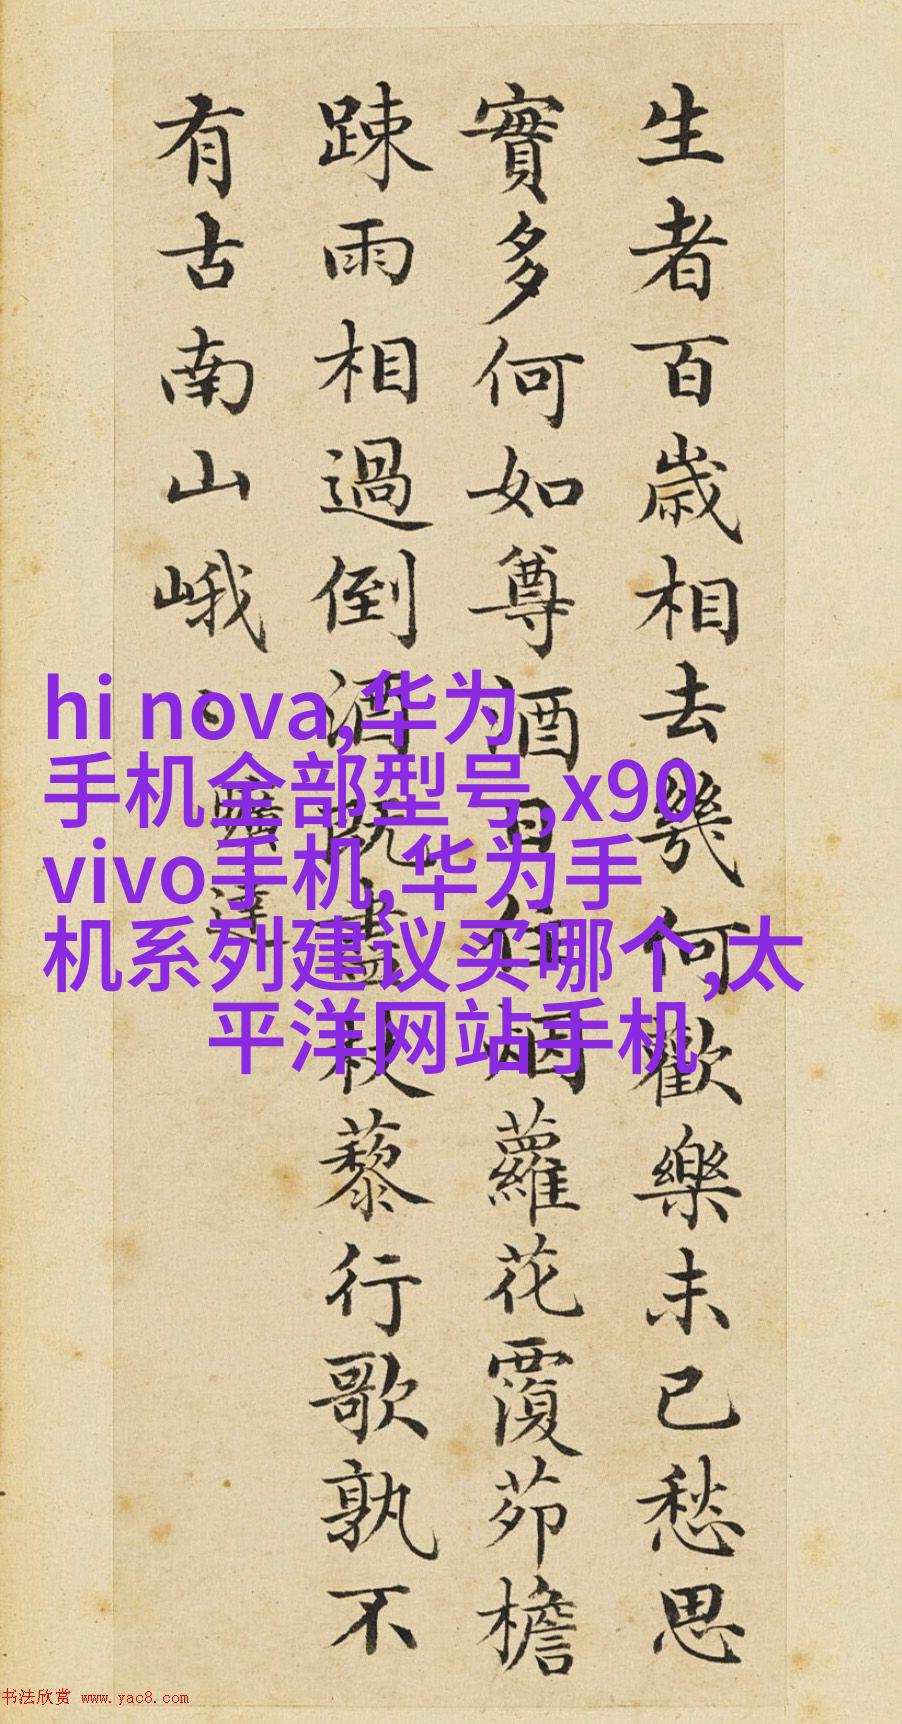 生者百歲相去幾何歡樂未已愁思
實多何如尊酒日往烟蘿花覆茆檐
踈雨相過倒酒既盡杖藜行歌孰不
有古南山峨丶
曠達
hi nova,华为
手机全部型号,x90
vivo手机,华为手
机系列建议买哪个,太
平洋网站手机
书法欣赏 www.yac8.com